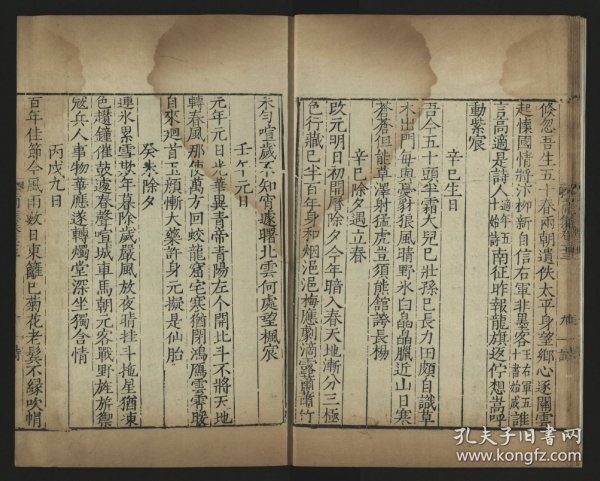 倏忽吾生五十春兩朝遺佚太平身望鄉心逐關雲
起懷國情將汴柳新自信右軍非墨客王右軍五十書始成誰
言高適是詩人適年五十始詩南征昨報龍旗返佇想嵩呼
動紫宸
辛巳生日
吾今五十頭半霜大兒已壯孫已長力田頗自識草
木出門每與憂豺狼風晴野水白晶晶臘近山日寒
蒼蒼但能草澤射猛虎豈須熊館誇長楊
辛巳除夕遇立春
改元明日初開曆除夕今年暗入春天地漸分三極
色行藏已半百年身和烟浥浥梅應劇滴露蕭蕭竹
未勻喧歲不知宵遽曙北雲何處望楓宸
壬午元日
元年元日光華異青帝青陽左个開北斗不將天地
轉春風那使萬方回蛟龍窟宅寒猶閉鴻鴈雲霄暖
自來廻首玉顏慚大藥許身元擬是仙胎
癸未除夕
連氷累雪欺年暮除歲嚴風放夜晴挂斗拖星猶凍
色攢鐘催鼓遽春聲喧城車馬朝元客戰野旌旂禦
寇兵人事物華應遂轉燭堂深坐獨含情
丙戌九日
百年佳節今風雨數日東籬已菊花老鬂不緣吹帽
孔夫子旧书网
www.kongfz.com